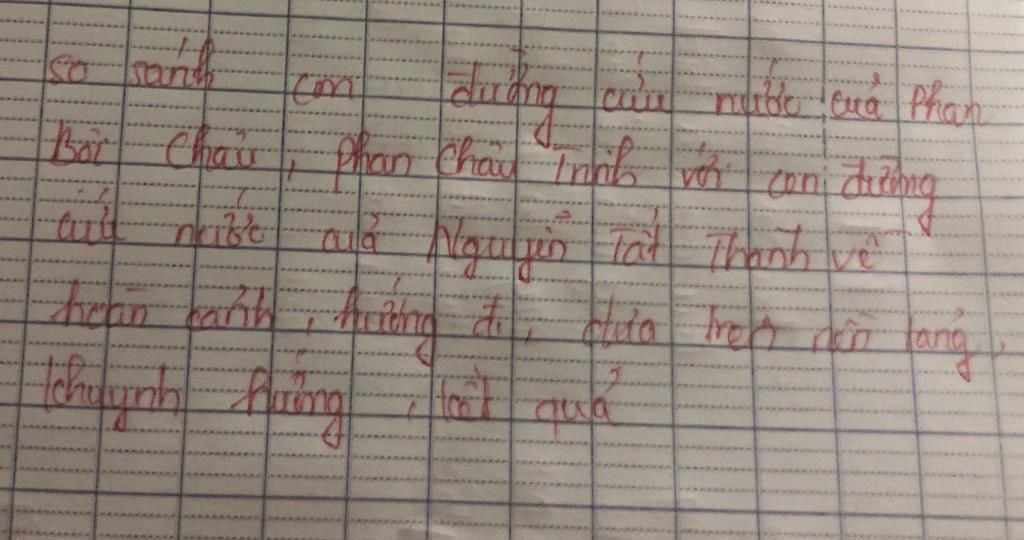 so sánh con đường cứu nước của Phan
Bội Châu, Phan Châu Trinh với con đường
cứu nước của Nguyễn Tất Thành về
hoàn cảnh, hướng đi, dựa trên nền tảng,
khuynh hướng, kết quả